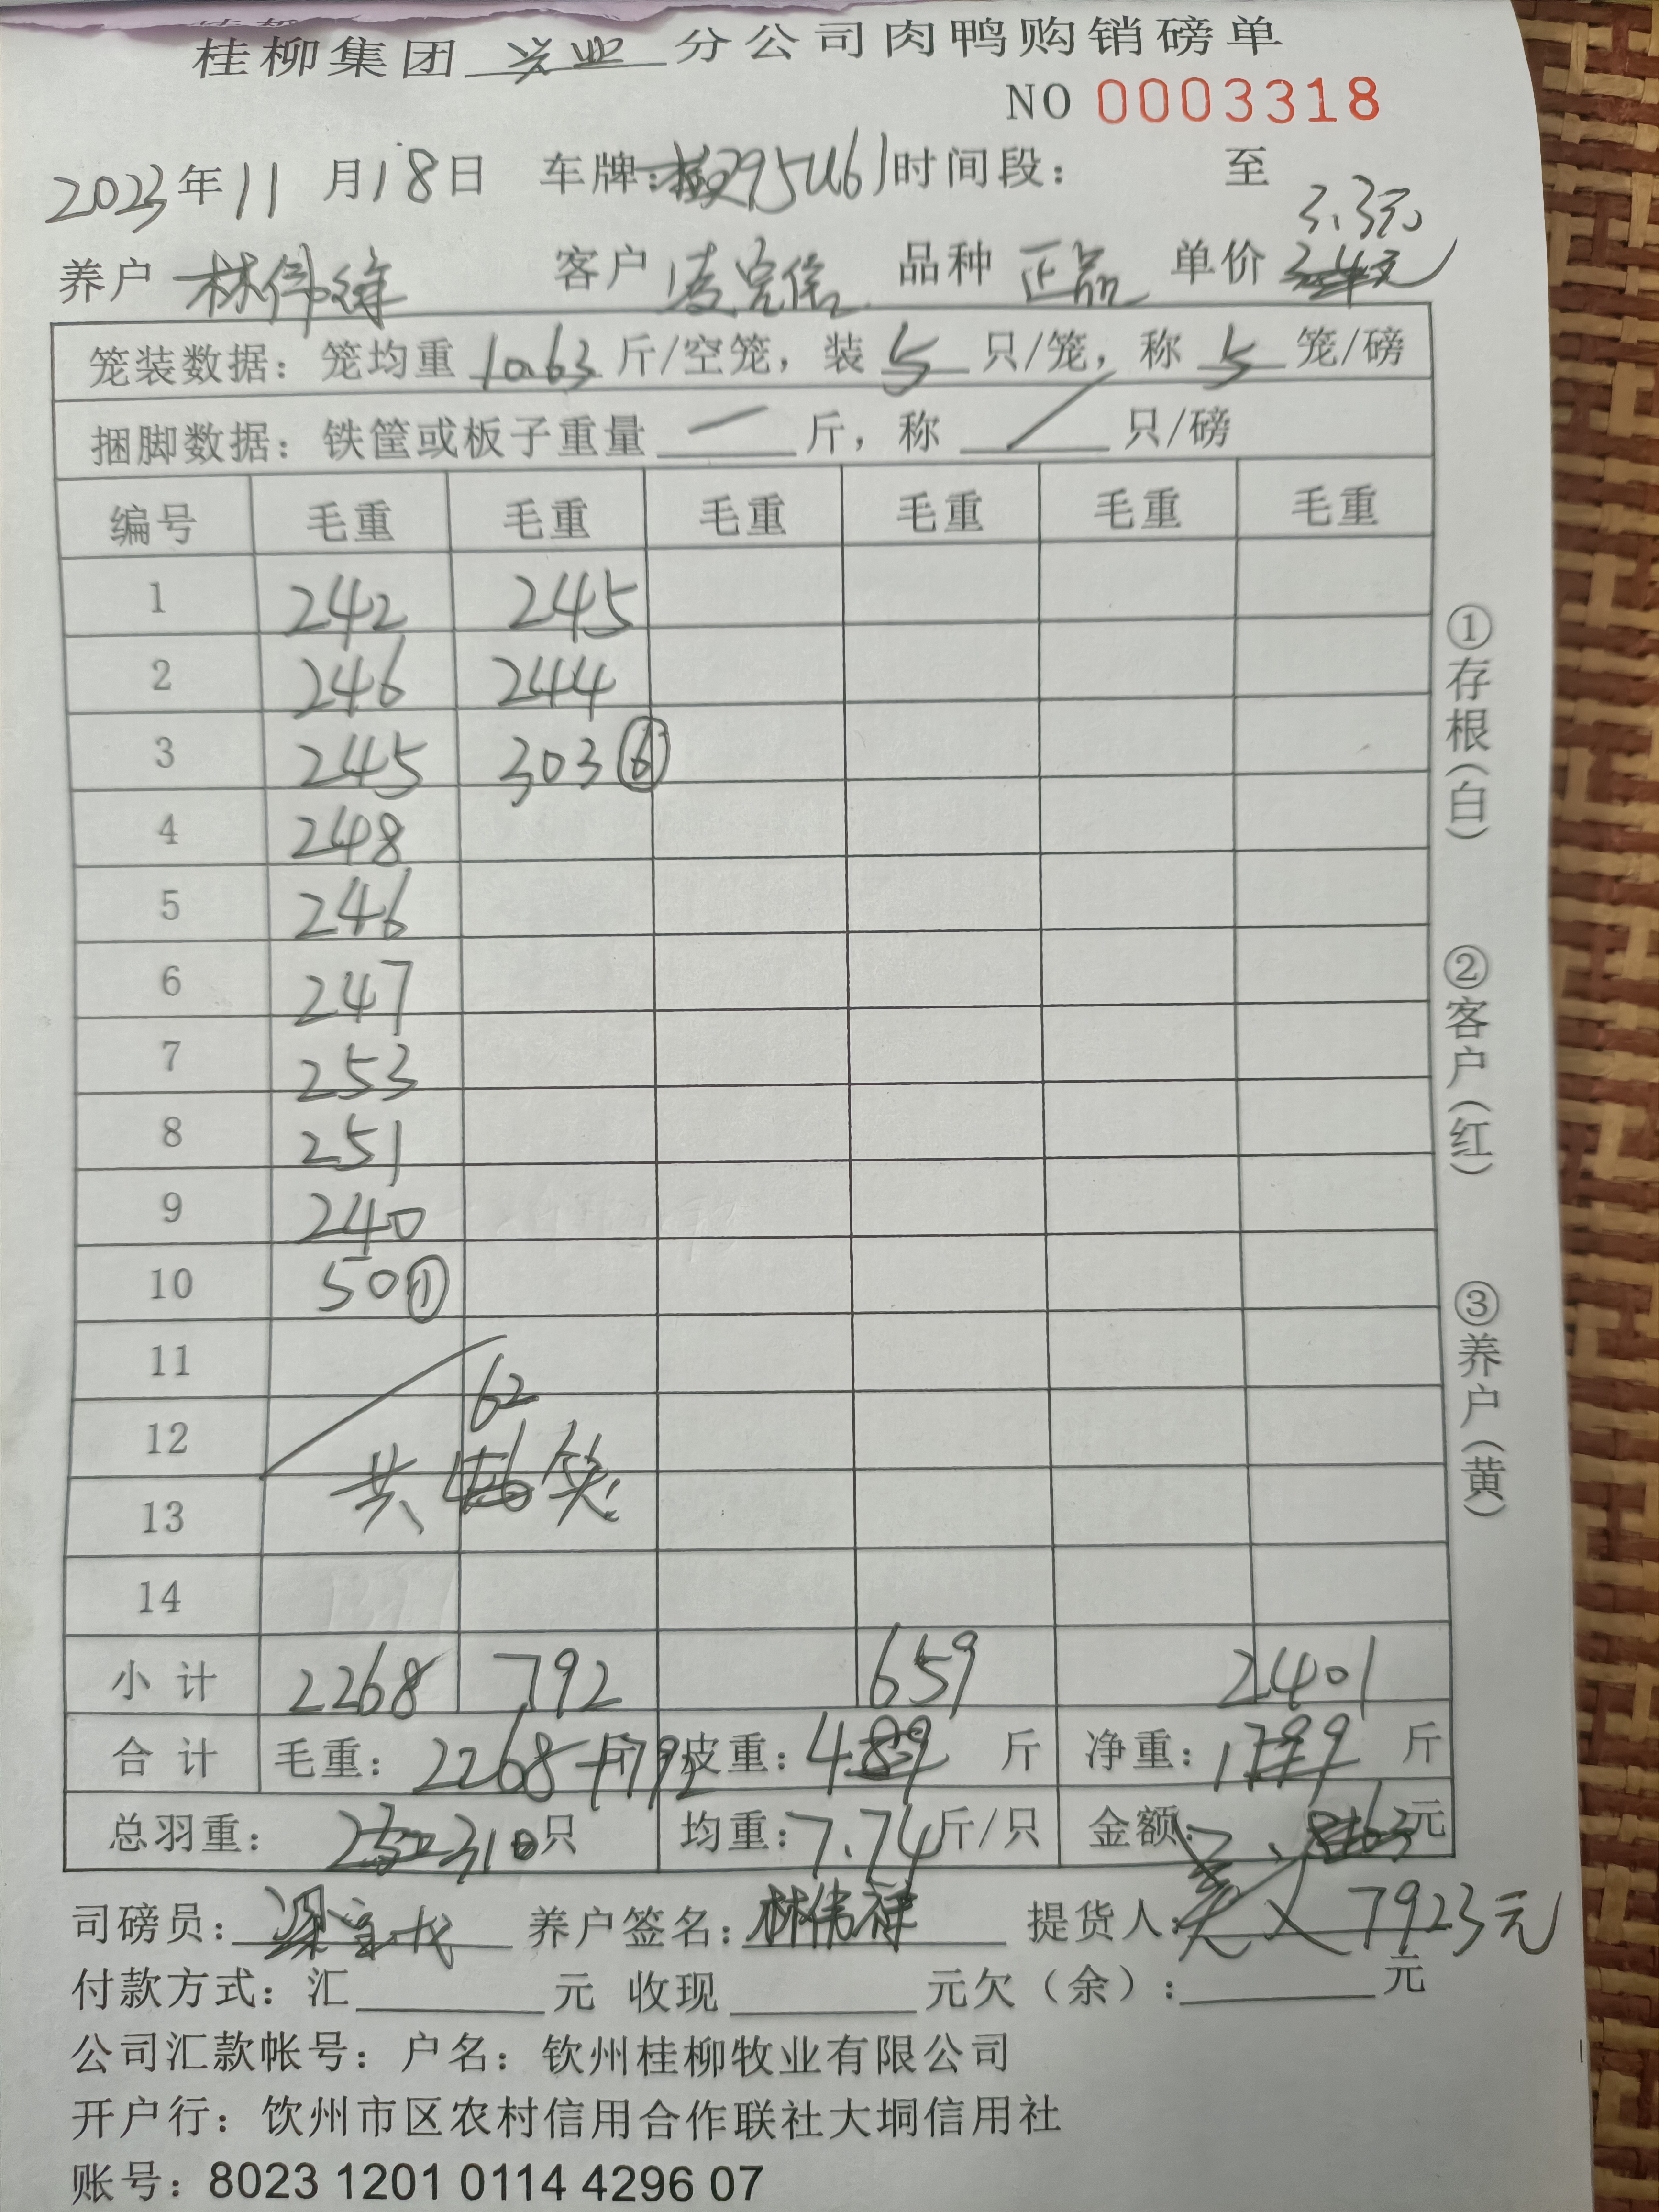 桂柳集团 兴业 分公司肉鸭购销磅单
NO 0003318
2023年11月18日 车牌: 时间段: 至
3.3元
养户 林伟 客户 凌 品种 正品 单价
笼装数据: 笼均重 10.63 斤/空笼, 装 5 只/笼, 称 5 笼/磅
捆脚数据: 铁筐或板子重量 — 斤, 称 / 只/磅
编号 毛重 毛重 毛重 毛重 毛重 毛重
1 242 245
2 246 244
3 245 303 ⑥
4 248
5 246
6 247
7 253
8 251
9 240
10 50 ①
11
62
12
共 笼
13
14
小计 2268 792 659 2401
合计 毛重: 2268+792 斤 皮重: 489 斤 净重: 斤
总羽重: 310 只 均重: 7.74 斤/只 金额: 元
司磅员: 梁 养户签名: 林伟祥 提货人: 7923元
付款方式: 汇 元 收现 元欠(余): 元
公司汇款帐号: 户名: 钦州桂柳牧业有限公司
开户行: 钦州市区农村信用合作联社大垌信用社
账号: 8023 1201 0114 4296 07
①存根(白)
②客户(红)
③养户(黄)